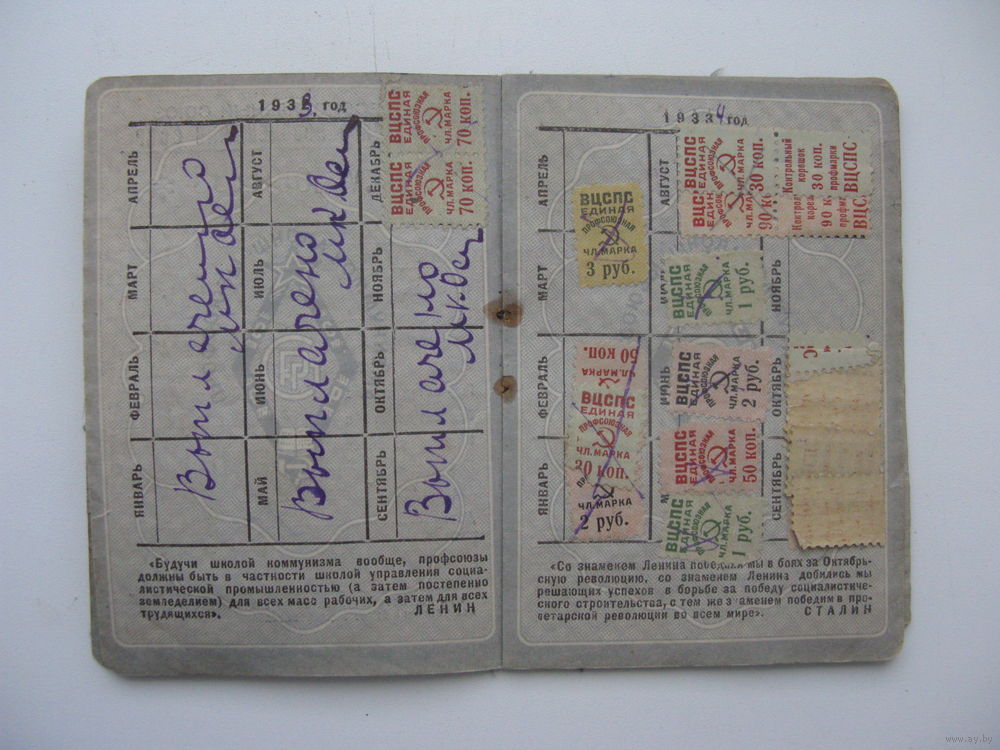 1933 год
АПРЕЛЬ
АВГУСТ
ДЕКАБРЬ
МАРТ
ИЮЛЬ
НОЯБРЬ
ФЕВРАЛЬ
ИЮНЬ
ОКТЯБРЬ
ЯНВАРЬ
МАЙ
СЕНТЯБРЬ
Выплачено
Выплачено
Выплачено
ВЦСПС
ЕДИНАЯ
ПРОФСОЮЗНАЯ
ЧЛ.МАРКА
70 КОП.
ВЦСПС
ЕДИНАЯ
ПРОФСОЮЗНАЯ
ЧЛ.МАРКА
70 КОП.
«Будучи школой коммунизма вообще, профсоюзы
должны быть в частности школой управления социа-
листической промышленностью (а затем постепенно
земледелием) для всех масс рабочих, а затем для всех
трудящихся».
ЛЕНИН
1934 год
АПРЕЛЬ
АВГУСТ
МАРТ
НОЯБРЬ
ФЕВРАЛЬ
ИЮНЬ
ОКТЯБРЬ
ЯНВАРЬ
СЕНТЯБРЬ
ВЦСПС
ЕДИНАЯ
ПРОФСОЮЗНАЯ
ЧЛ.МАРКА
3 руб.
ЧЛ.МАРКА
ВЦСПС
ЕДИНАЯ
ПРОФСОЮЗНАЯ
ЧЛ.МАРКА
2 руб.
ВЦСПС
90 К
30 КОП.
Контрольный
корешок
30 КОП.
профмарки
ВЦСПС
ВЦСПС
ЕДИНАЯ
ПРОФСОЮЗНАЯ
ЧЛ.МАРКА
1 руб.
ВЦСПС
ЕДИНАЯ
ПРОФСОЮЗНАЯ
ЧЛ.МАРКА
2 руб.
ВЦСПС
ЕДИНАЯ
ПРОФСОЮЗНАЯ
ЧЛ.МАРКА
50 КОП.
ВЦСПС
ЕДИНАЯ
ПРОФСОЮЗНАЯ
ЧЛ.МАРКА
1 руб.
«Со знаменем Ленина победили мы в боях за Октябрь-
скую революцию, со знаменем Ленина добились мы
решающих успехов в борьбе за победу социалистиче-
ского строительства, с тем же знаменем победим в про-
летарской революции во всем мире».
СТАЛИН
www.ay.by